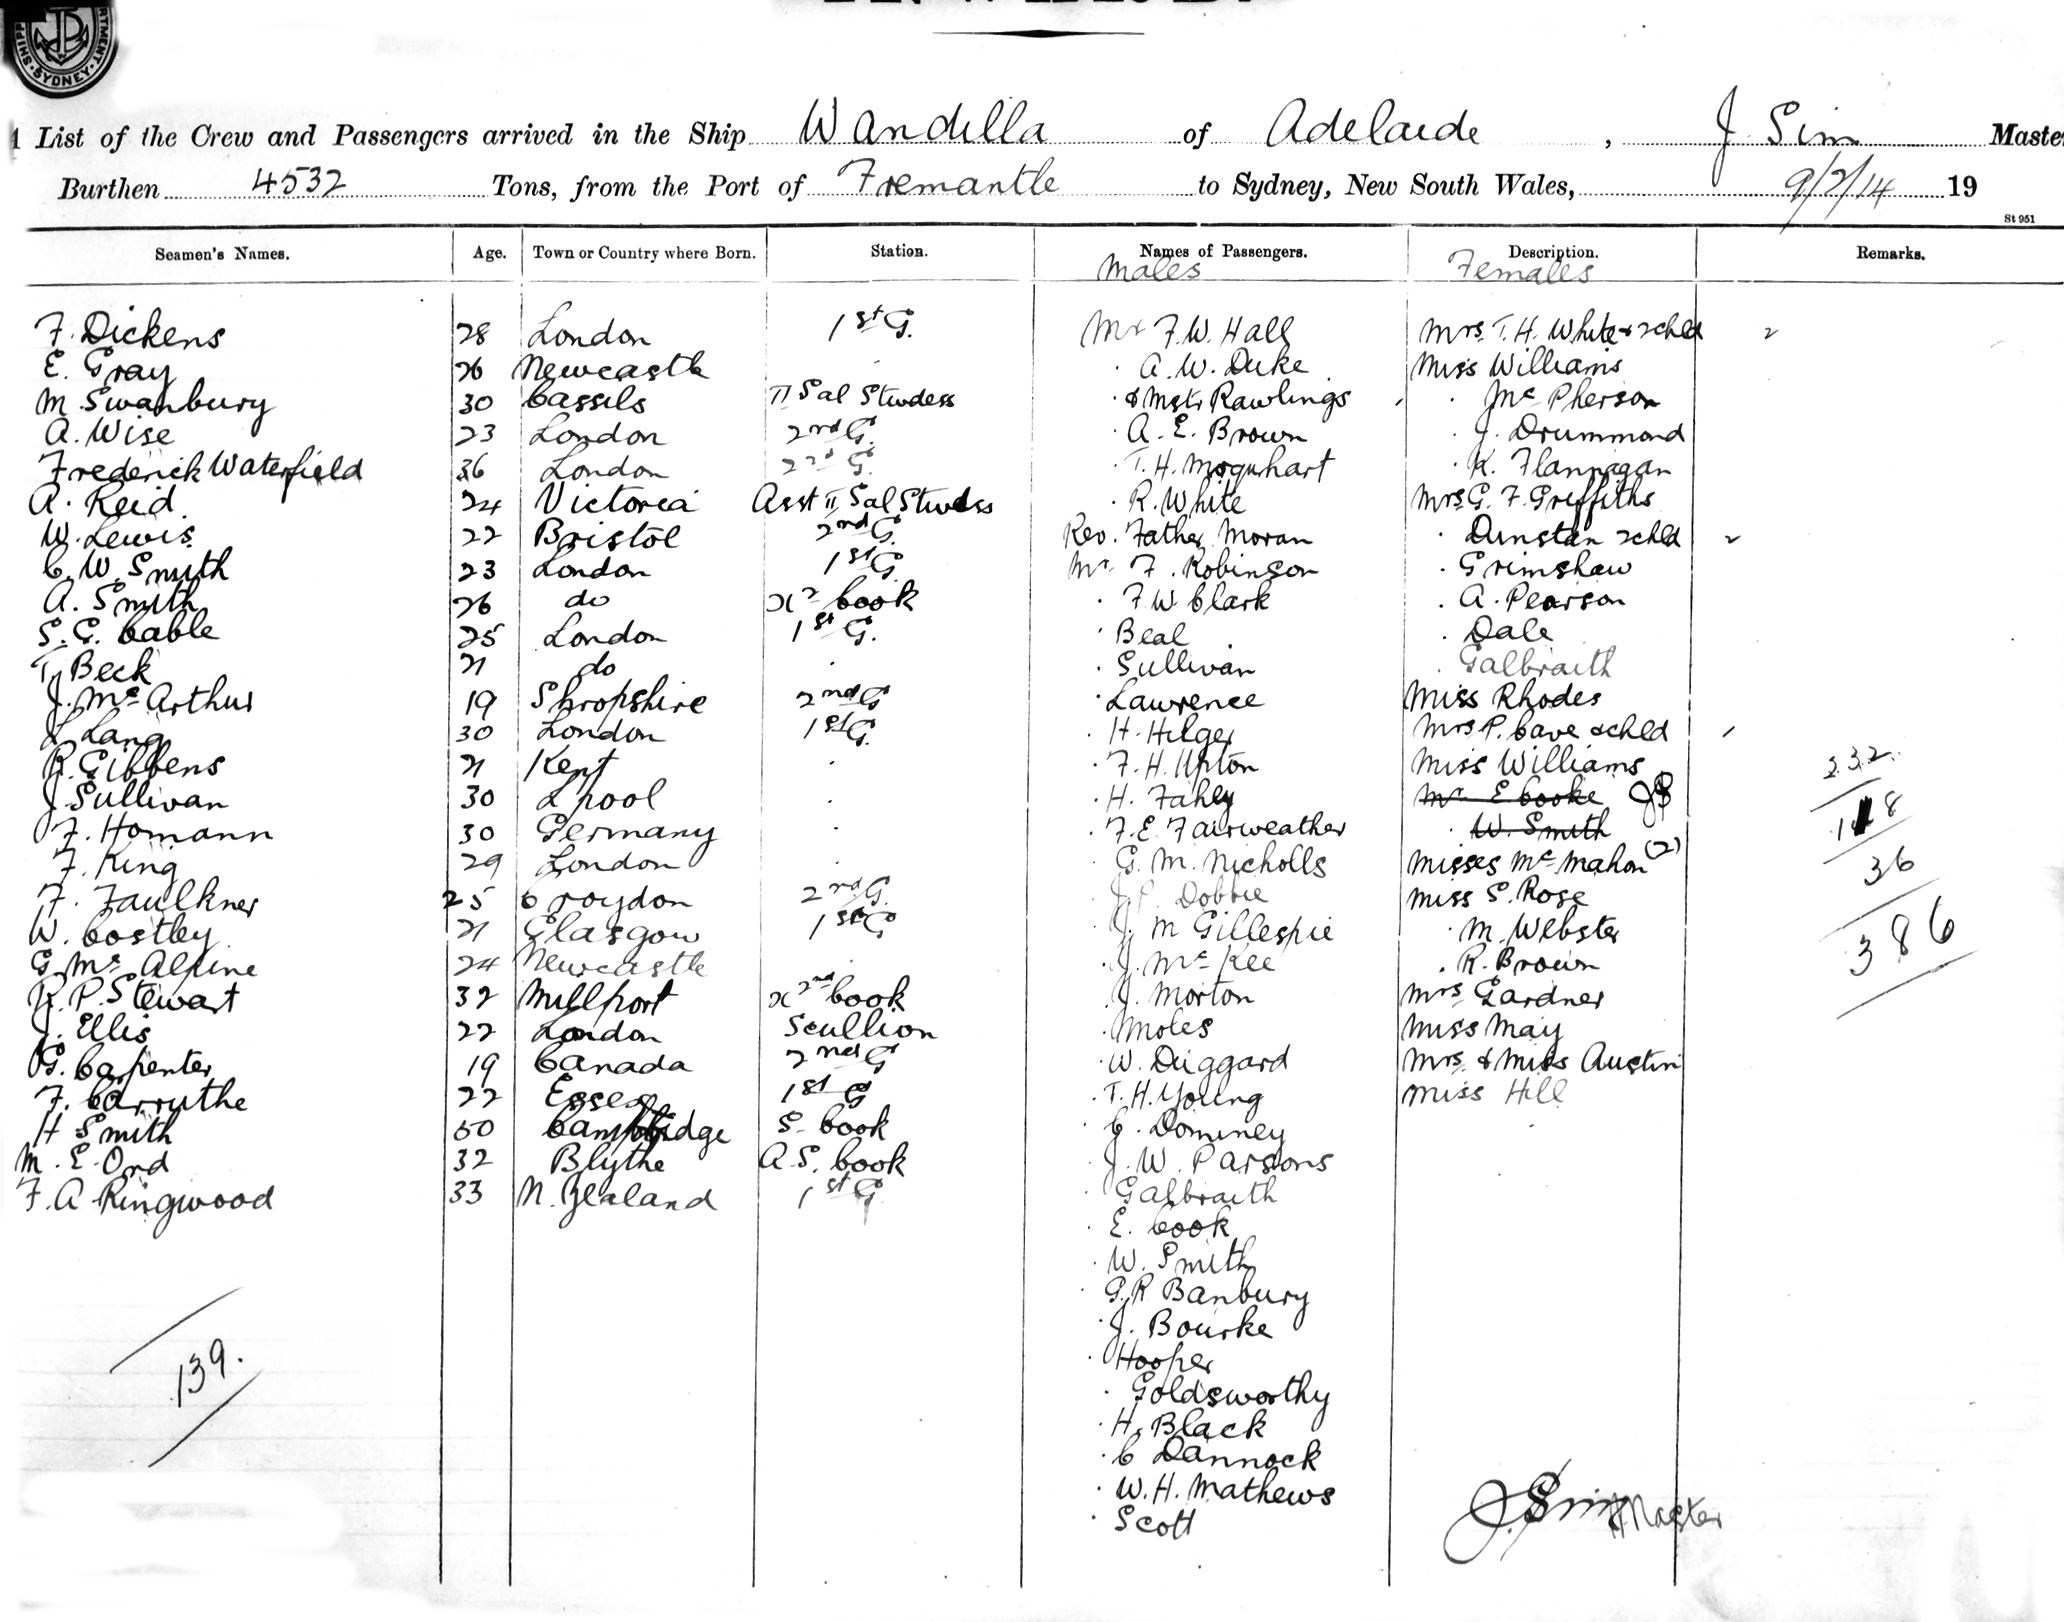 SYDNEY
A List of the Crew and Passengers arrived in the Ship Wandilla of Adelaide, J Sim Master
Burthen 4532 Tons, from the Port of Fremantle to Sydney, New South Wales, 9/2/14 19
St 951
Seamen's Names. Age. Town or Country where Born. Station. Names of Passengers. Description. Remarks.
Males Females
F. Dickens 28 London 1st G. Mr F. W. Hall Mrs T. H. White & 2 chld 2
E. Gray 26 Newcastle . · A. W. Duke Miss Williams
M Swanbury 30 Cassils II Sal Stwdess · & Mstr Rawlings · Mc Pherson
A. Wise 23 London 2nd G. · A. E. Brown · J. Drummond
Frederick Waterfield 36 London 2nd G. · T. H. Moquhart · K. Flannagan
A. Reid. 24 Victoria Asst II Sal Stwdss · R. White Mrs G. F. Griffiths
W. Lewis 22 Bristol 2nd G. Rev. Father Moran · Dunstan 2 chld 2
C. W. Smith 23 London 1st G. Mr F. Robinson · Grimshaw
A. Smith 26 do x 2 Cook · F. W. Clark · A. Pearson
S. G. Cable 25 London 1st G. · Beal · Dale
T. Beck 21 do . · Sullivan · Galbraith
J. Mc Arthur 19 Shropshire 2nd G · Lawrence Miss Rhodes
L Lang 30 London 1st G. · H. Hilger Mrs P. Cave & chld
R. Gibbens 21 Kent . · F. H. Upton Miss Williams 232.
J Sullivan 30 L'pool . · H. Fahey Mr E Cooke JS
F. Homann 30 Germany . · F. E. Fairweather · W. Smith 118
F. King 29 London . · G. M. Nicholls Misses Mc Mahon (2) 36
F. Faulkner 25 Croydon 2nd G. J. P. Dobbie Miss S. Rose
W. Costley 21 Glasgow 1st G · J. M Gillespie · M. Webster 386
G Mc Alpine 24 Newcastle . · J. Mc Kee · R. Brown
R. P. Stewart 32 Millport x 2nd Cook · J. Morton Mrs Gardner
J. Ellis 22 London Scullion · Moles Miss May
G. Carpenter 19 Canada 2nd G · W. Duggard Mrs & Miss Austin
F. Carruthe 22 Essex 1st G · T. H. Young Miss Hill
H Smith 50 Cambridge S. Cook · C. Dominey
M. E. Ord 32 Blythe A. S. Cook · J. W. Parsons
F. A Ringwood 33 N. Zealand 1st G · Galbraith
· E. Cook
· W. Smith
· G. R Banbury
· J. Bourke
· Hooper
· Goldsworthy
139.
· H. Black
· C Dannock
· W. H. Mathews
· Scott
J. Sim Master